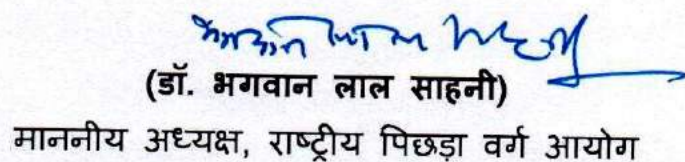 भगवान लाल साहनी
(डॉ. भगवान लाल साहनी)
माननीय अध्यक्ष, राष्ट्रीय पिछड़ा वर्ग आयोग